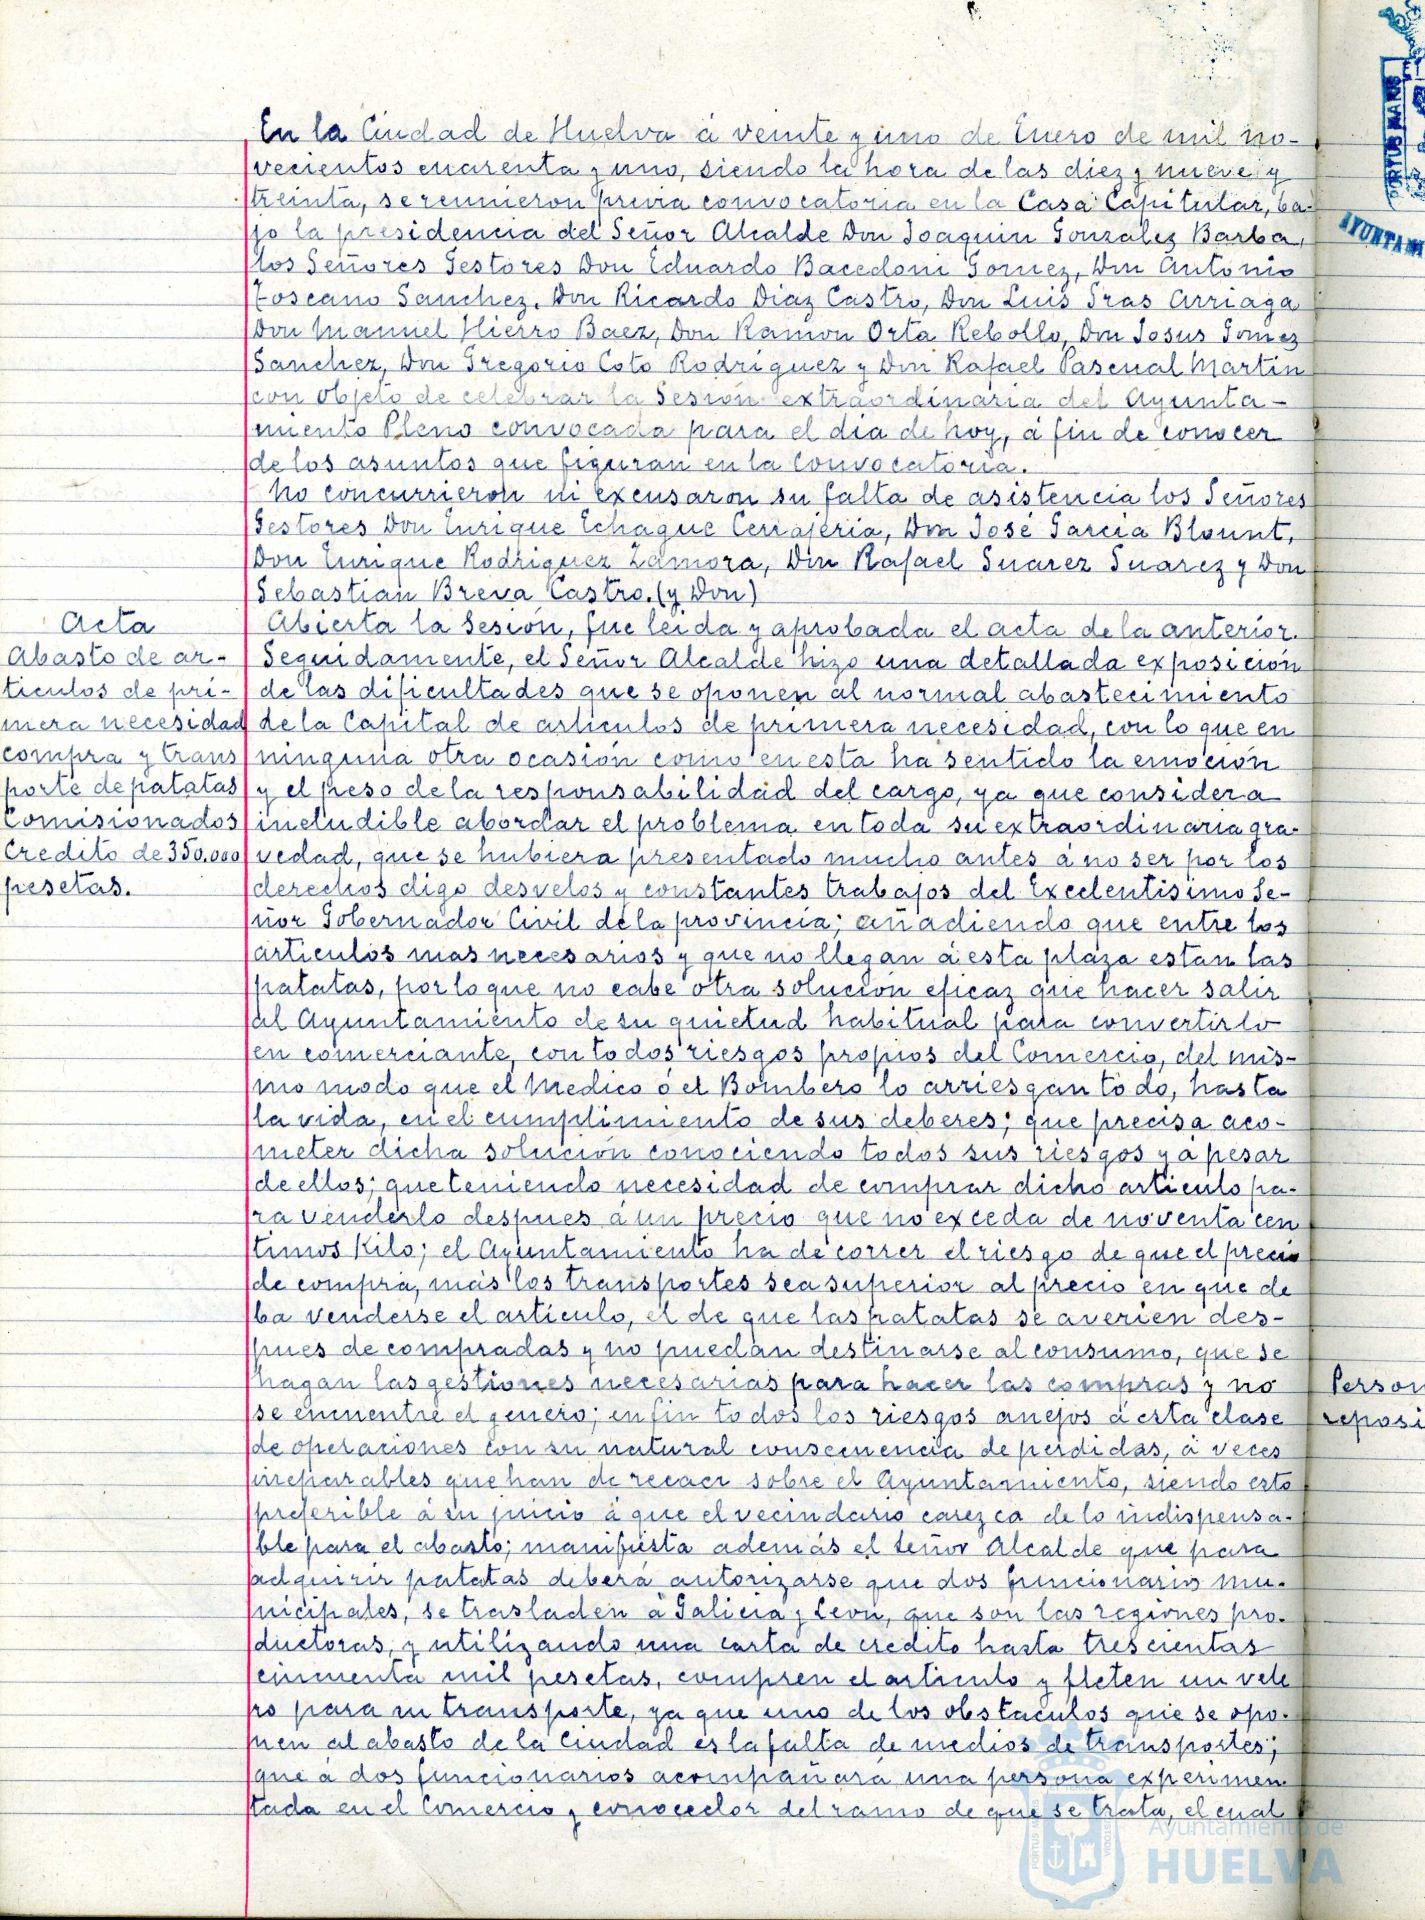 En la Ciudad de Huelva á veinte y uno de Enero de mil no-
vecientos cuarenta y uno, siendo la hora de las diez y nueve y
treinta, se reunieron previa convocatoria en la Casa Capitular, ba-
jo la presidencia del Señor Alcalde Don Joaquin Gonzalez Barba,
los Señores Gestores Don Eduardo Bacedoni Gomez, Don Antonio
Toscano Sanchez, Don Ricardo Diaz Castro, Don Luis Sras Arriaga
Don Manuel Hierro Baez, Don Ramon Orta Rebollo, Don Josus Gomez
Sanchez, Don Gregorio Coto Rodriguez y Don Rafael Pascual Martin
con objeto de celebrar la Sesión extraordinaria del Ayunta-
miento Pleno convocada para el dia de hoy, á fin de conocer
de los asuntos que figuran en la convocatoria.
No concurrieron ni excusaron su falta de asistencia los Señores
Gestores Don Enrique Echague Cerrajeria, Don José Garcia Blount,
Don Enrique Rodriguez Zamora, Don Rafael Suarez Suarez y Don
Sebastian Breva Castro. (y Don)
Acta
Abasto de ar-
ticulos de pri-
mera necesidad
compra y trans
porte de patatas
Comisionados
Credito de 350.000
pesetas.
Abierta la Sesión, fue leida y aprobada el acta de la anterior.
Seguidamente, el Señor Alcalde hizo una detallada exposición
de las dificultades que se oponen al normal abastecimiento
de la Capital de articulos de primera necesidad, con lo que en
ninguna otra ocasión como en esta ha sentido la emoción
y el peso de la responsabilidad del cargo, ya que considera
ineludible abordar el problema en toda su extraordinaria gra-
vedad, que se hubiera presentado mucho antes á no ser por los
derechos digo desvelos y constantes trabajos del Excelentisimo Se-
ñor Gobernador Civil de la provincia; añadiendo que entre los
articulos mas necesarios y que no llegan á esta plaza estan las
patatas, por lo que no cabe otra solución eficaz que hacer salir
al Ayuntamiento de su quietud habitual para convertirlo
en comerciante, con todos riesgos propios del Comercio, del mis-
mo modo que el Medico ó el Bombero lo arriesgan todo, hasta
la vida, en el cumplimiento de sus deberes; que precisa aco-
meter dicha solución conociendo todos sus riesgos y á pesar
de ellos; que teniendo necesidad de comprar dicho articulo pa-
ra venderlo despues á un precio que no exceda de noventa cen
timos Kilo; el Ayuntamiento ha de correr el riesgo de que el precio
de compra, más los transportes sea superior al precio en que de
ba venderse el articulo, el de que las patatas se averien des-
pues de compradas y no puedan destinarse al consumo, que se
hagan las gestiones necesarias para hacer las compras y no
se encuentre el genero; en fin todos los riesgos anejos á esta clase
de operaciones con su natural consecuencia de perdidas, á veces
irreparables que han de recaer sobre el Ayuntamiento, siendo esto
preferible á su juicio á que el vecindario carezca de lo indispensa-
ble para el abasto; manifiesta además el señor Alcalde que para
adquirir patatas deberá autorizarse que dos funcionarios mu-
nicipales, se trasladen á Galicia y Leon, que son las regiones pro-
ductoras, y utilizando una carta de credito hasta trescientas
cincuenta mil pesetas, compren el articulo y fleten un vele
ro para su transporte, ya que uno de los obstaculos que se opo-
nen al abasto de la Ciudad es la falta de medios de transportes;
que á dos funcionarios acompañará una persona experimen-
tada en el Comercio y conocedor del ramo de que se trata, el cual
Person
reposi
PORTUS MARIS
AYUNTAMI
Ayuntamiento de
HUELVA